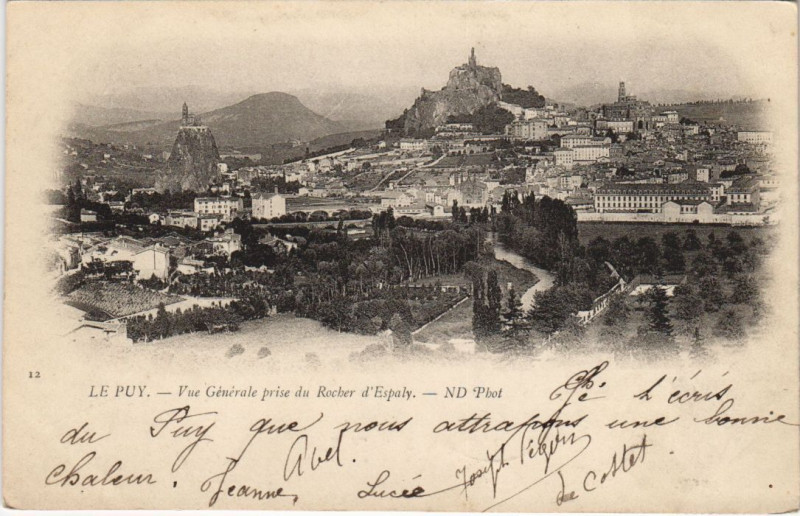 12
LE PUY. — Vue Générale prise du Rocher d'Espaly. — ND Phot
Je t'écris
du Puy que nous attrapons une bonne
chaleur. Jeanne, Abel. Lucée Joseph